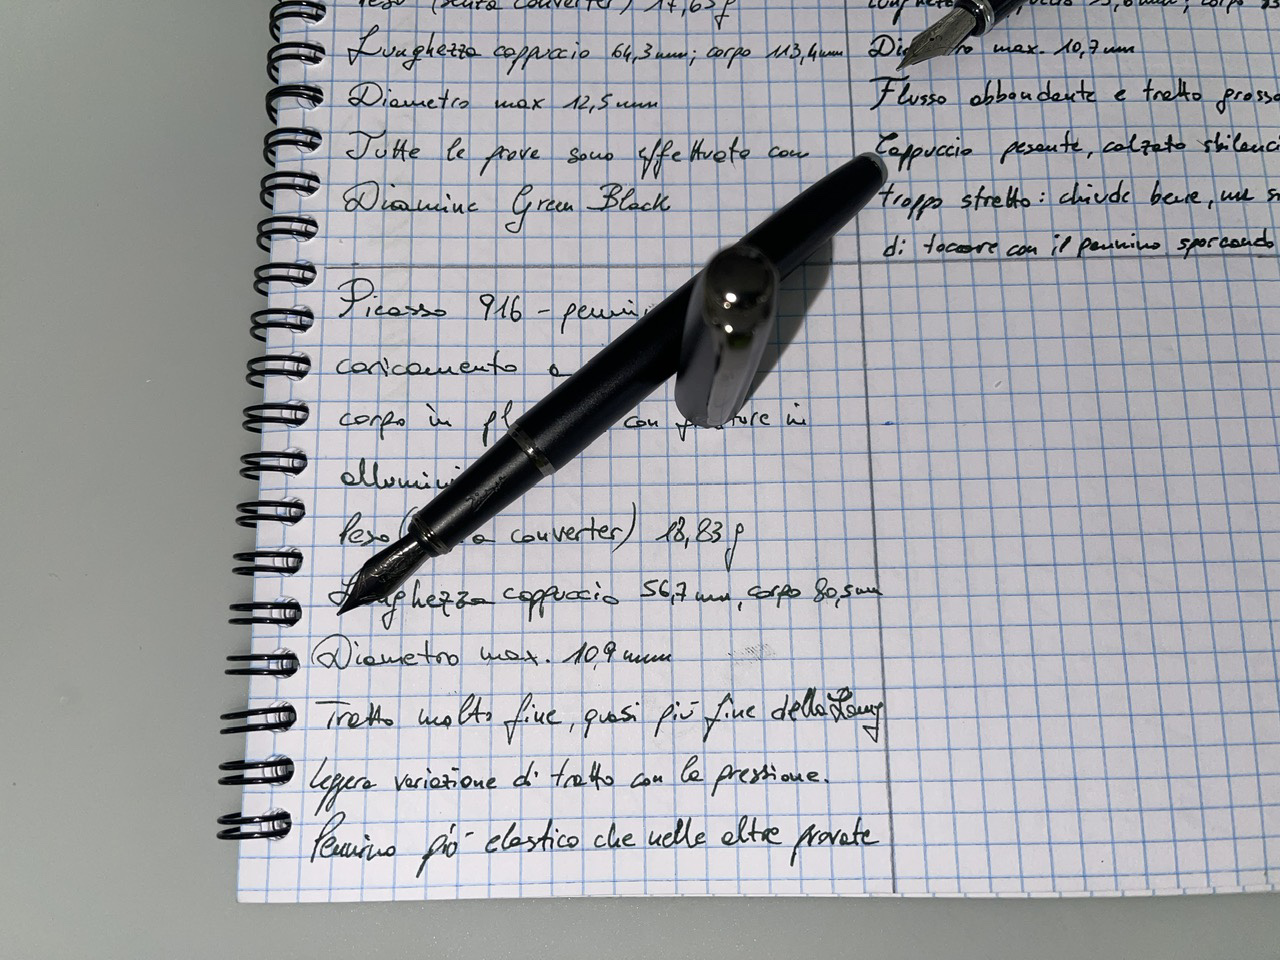 Peso (senza converter) 17,65 g
Lunghezza cappuccio 64,3 mm; corpo 113,4 mm
Diametro max 12,5 mm
Tutte le prove sono effettuate con
Diamine Green Black
Picasso 916 - penni
caricamento a
corpo in pl con in
allumini
Peso ( a converter) 18,83 g
Lunghezza cappuccio 56,7 mm, corpo 80,5 mm
Diametro max. 10,9 mm
Tratto molto fine, quasi più fine della Lamy
leggera variazione di tratto con la pressione.
Pennino più elastico che nelle altre provate
max. 10,7 mm
Flusso abbondante e tratto grosso
Cappuccio pesante, calzato sbilanci
troppo stretto: chiude bene, ma s
di toccare con il pennino sporcando